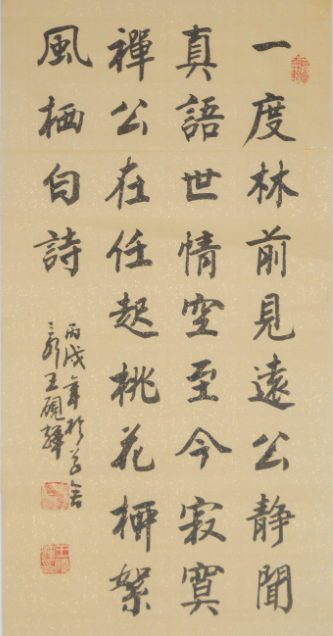 一度林前見遠公靜聞
真語世情空至今寂寞
禪公在任起桃花柳絮
風栖白詩
丙戌年於舍
王硯輝